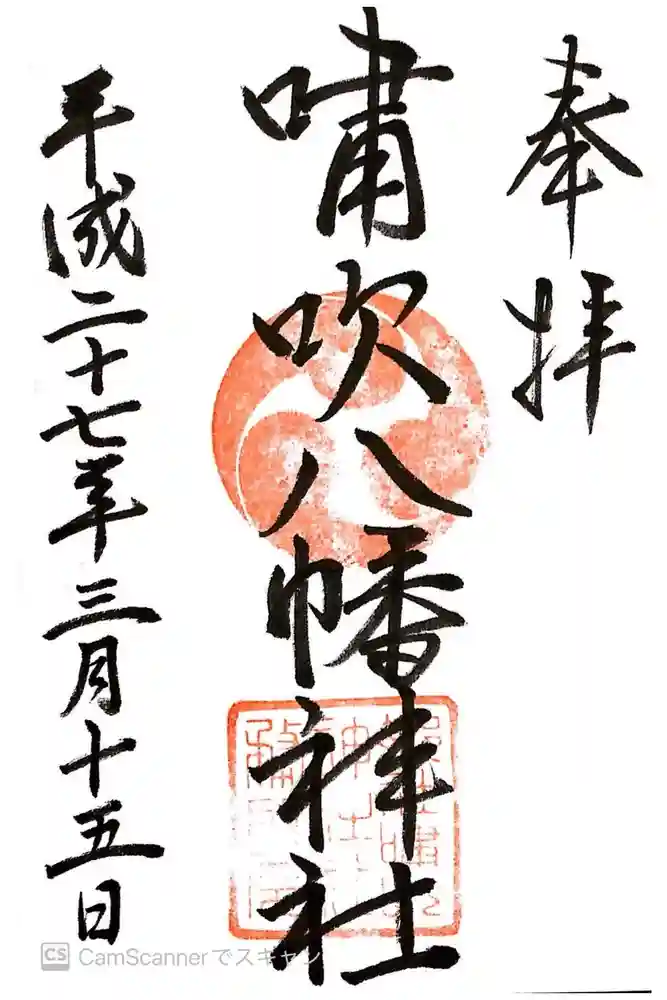 奉拝
嘯吹八幡神社
平成二十七年三月十五日
CS CamScannerでスキャン